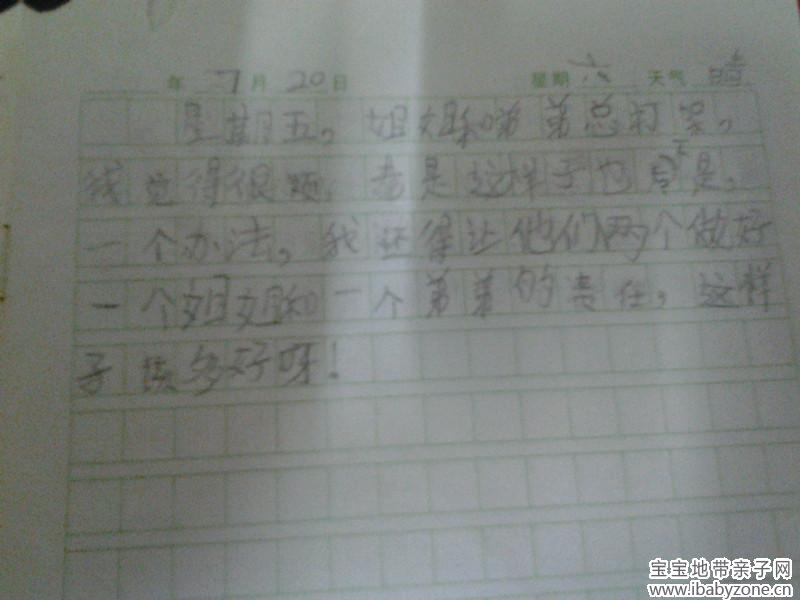 年 7月20日 星期六 天气 晴
星期五,姐姐和弟弟总打架,
我觉得很烦,老是这样子也不是,
一个办法,我还得让他们两个做好
一个姐姐和一个弟弟的责任,这样
子该多好呀!
宝宝地带亲子网
www.ibabyzone.cn